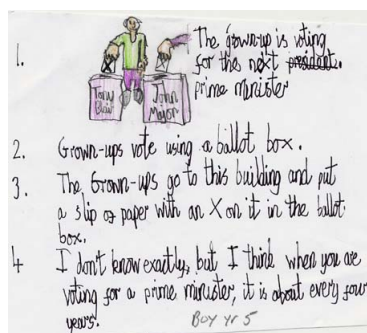 1.
The grown-up is voting
for the next president.
prime minister
Tony
Blair
John
Mayor
2. Grown-ups vote using a ballot box.
3. The Grown-ups go to this building and put
a slip of paper with an X on it in the ballot
box.
4 I don't know exactly, but I think when you are
voting for a prime minister, it is about every four
years.
Boy yr 5